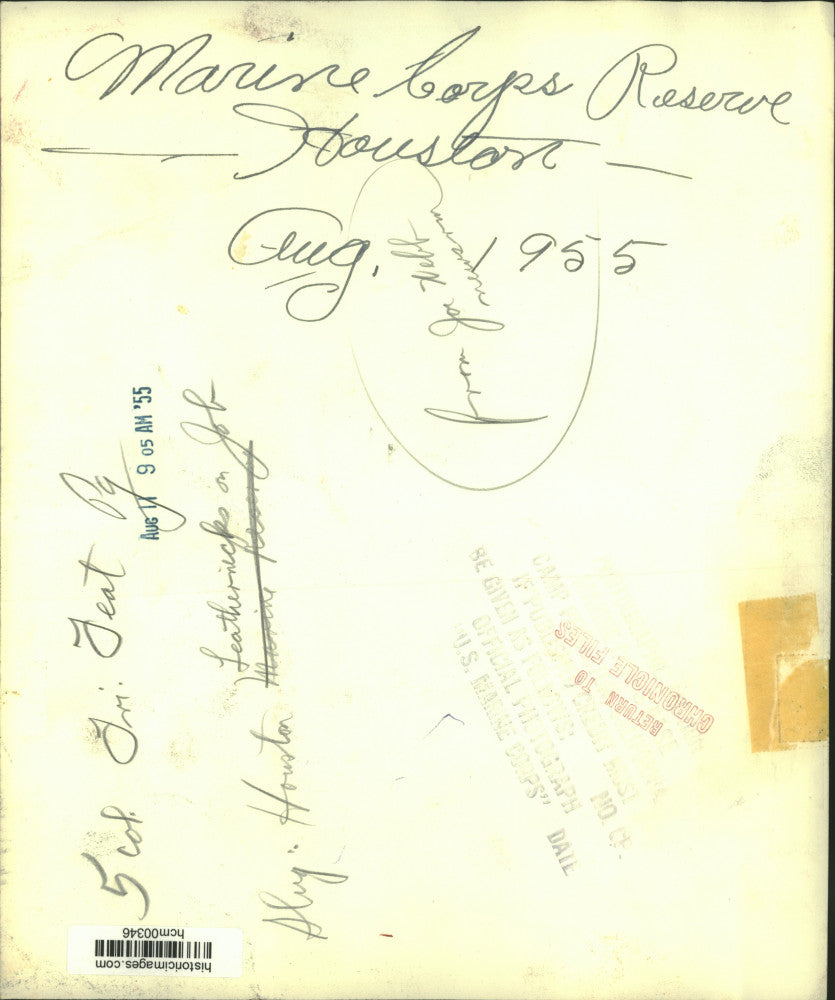 Marine Corps Reserve
Houston
Aug. 1955
from Joe Heff
AUG 11 9 05 AM '55
5 col. Fri. Feat Pg
Slug: Houston Leathernecks on Job
Marine
RETURN TO
CHRONICLE FILES
CAMP
IF PUBLISHED, CREDIT MUST
BE GIVEN AS FOLLOWS
OFFICIAL PHOTOGRAPH
"U.S. MARINE CORPS"
NO.
DATE
hcm00346
historicimages.com